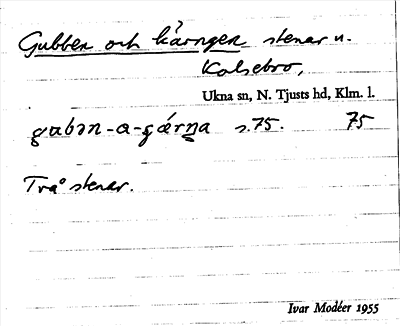 Gubben och kärngen stenar n.
Kolsebro,
Ukna sn, N. Tjusts hd, Klm. l.
gubən-a-gǽrna s. 75. 75
Två stenar.
Ivar Modéer 1955